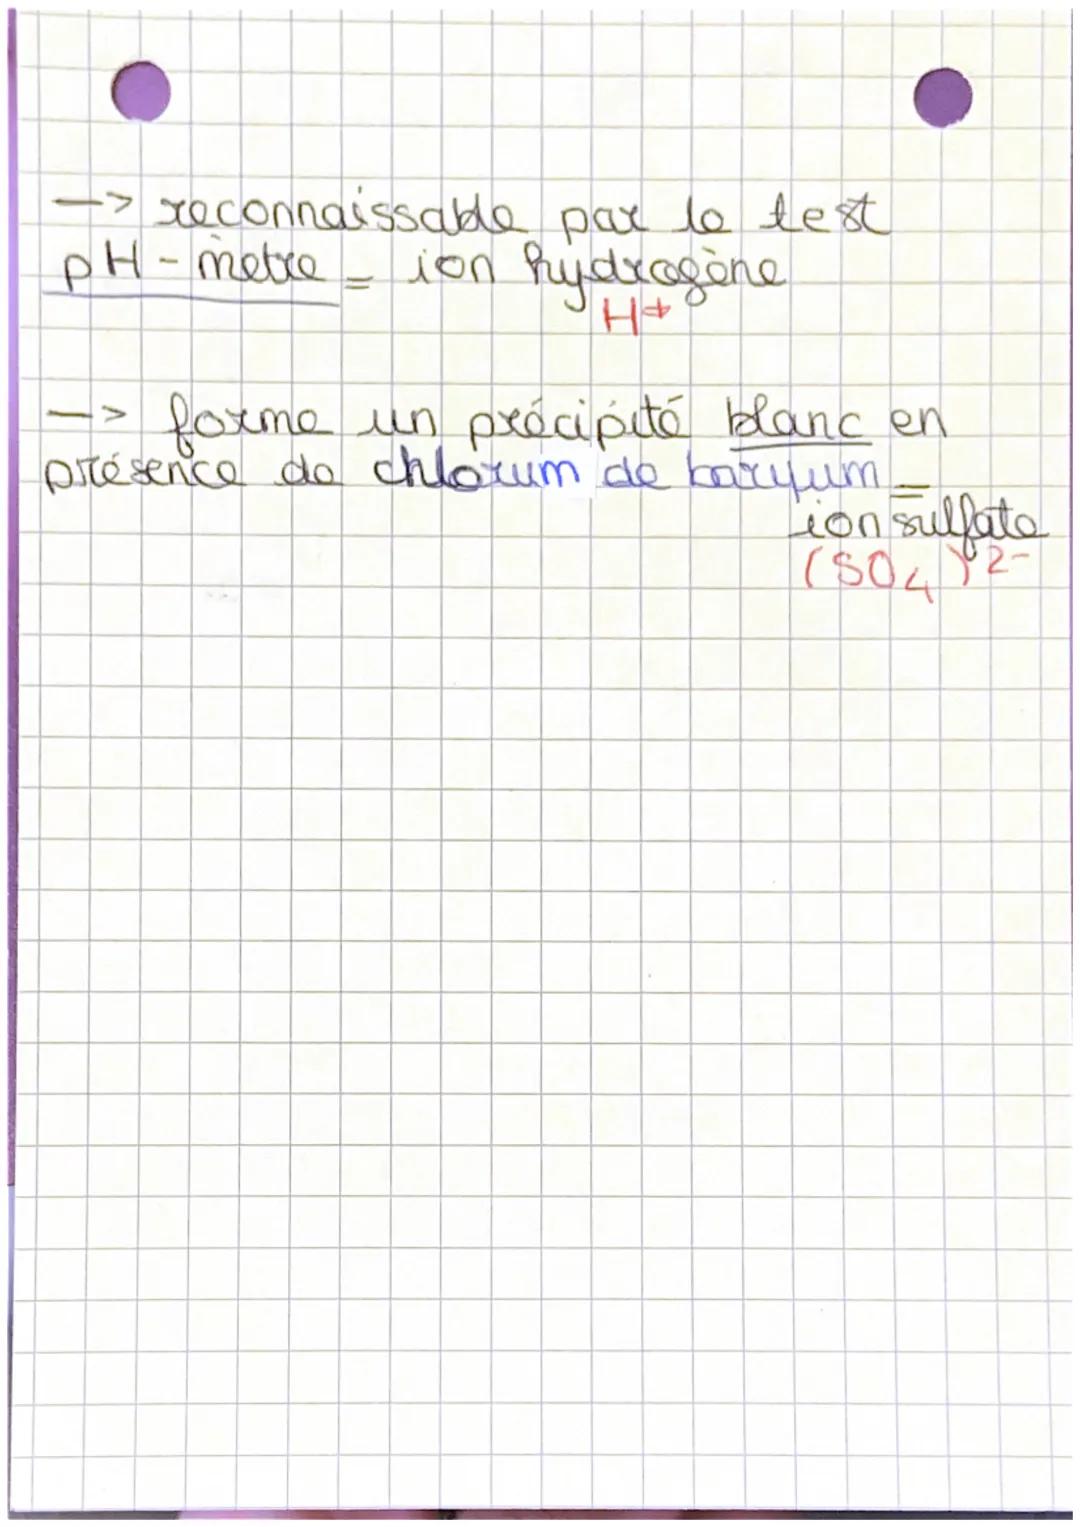 -> reconnaissable par le test
pH-mètre = ion hydrogène
H+
-> forme un précipité blanc en
présence de chlorum de baryum =
ion sulfate
(SO4)2-